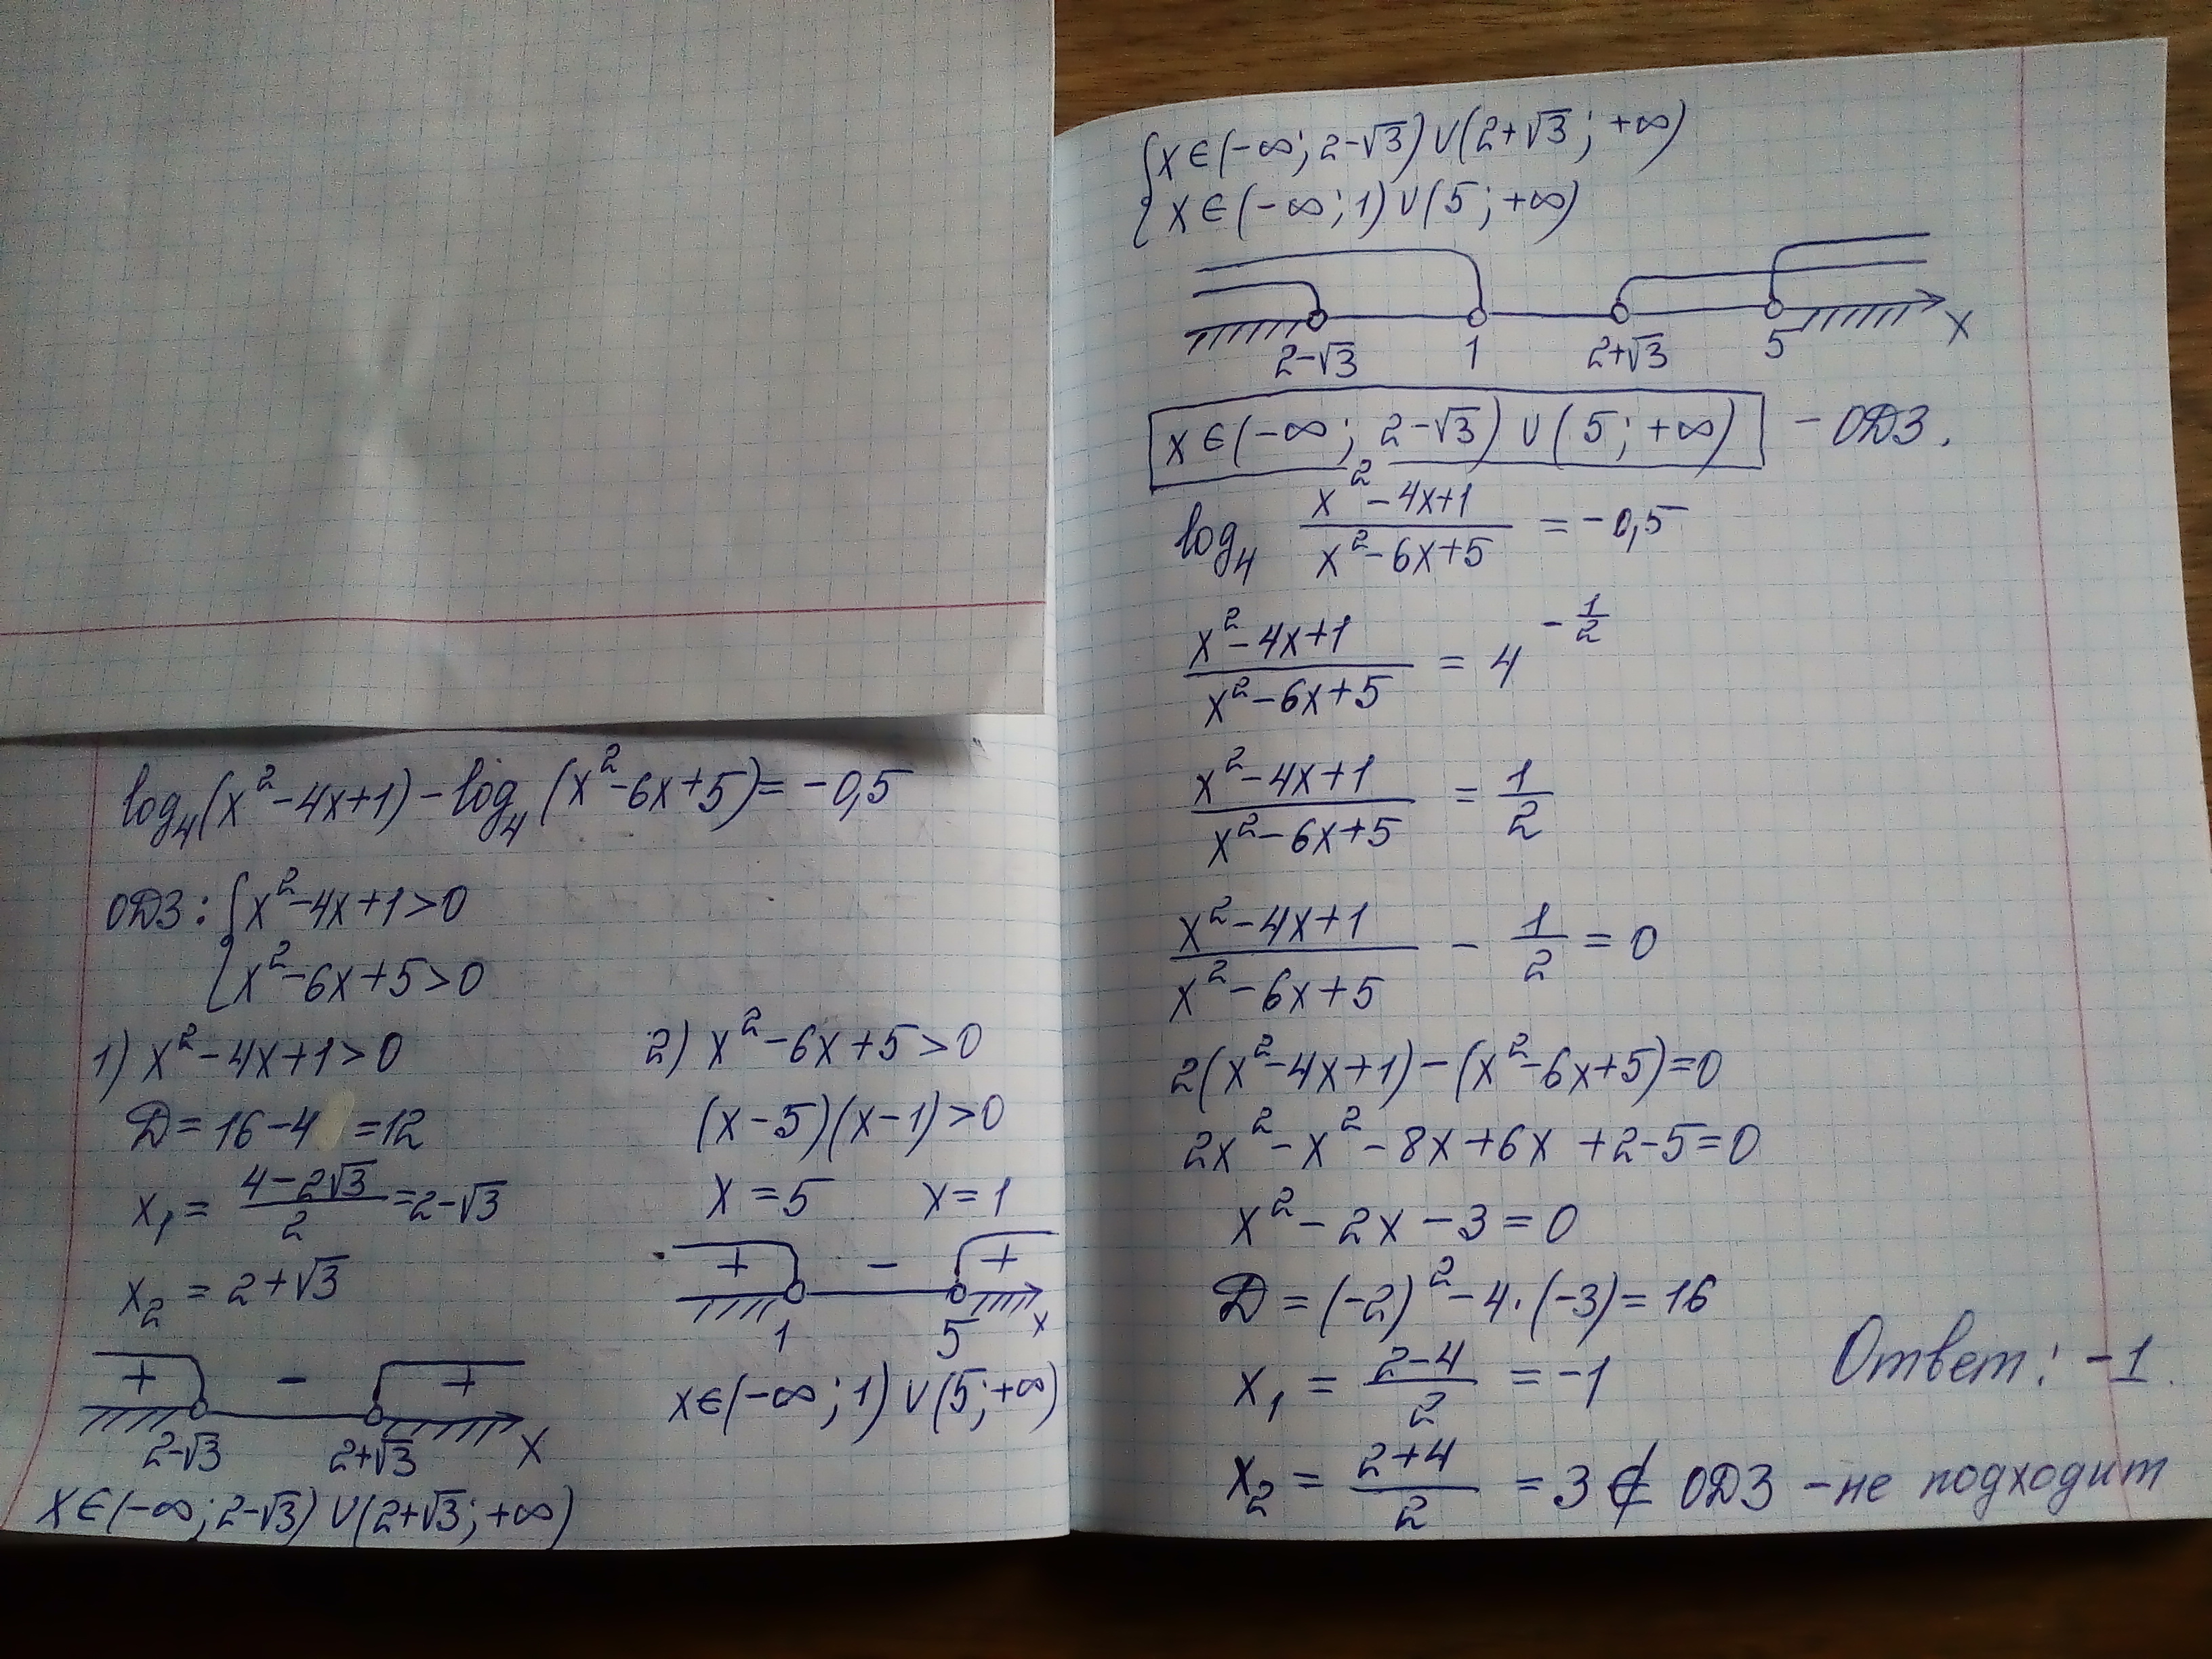 log₄(x²-4x+1)-log₄(x²-6x+5)=-0,5
ОДЗ: { x²-4x+1>0
{ x²-6x+5>0
1) x²-4x+1>0
D=16-4 =12
x₁ = (4-2√3)/2 =2-√3
x₂ = 2+√3
+ - +
2-√3 2+√3 x
x∈(-∞;2-√3)∪(2+√3;+∞)
2) x²-6x+5>0
(x-5)(x-1)>0
x=5 x=1
+ - +
1 5 x
x∈(-∞;1)∪(5;+∞)
{ x∈(-∞;2-√3)∪(2+√3;+∞)
{ x∈(-∞;1)∪(5;+∞)
2-√3 1 2+√3 5 x
x∈(-∞; 2-√3)∪(5;+∞) - ОДЗ.
log₄ (x²-4x+1)/(x²-6x+5) = -0,5
(x²-4x+1)/(x²-6x+5) = 4^(-1/2)
(x²-4x+1)/(x²-6x+5) = 1/2
(x²-4x+1)/(x²-6x+5) - 1/2 = 0
2(x²-4x+1)-(x²-6x+5)=0
2x²-x²-8x+6x+2-5=0
x²-2x-3=0
D=(-2)²-4·(-3)=16
x₁ = (2-4)/2 = -1
x₂ = (2+4)/2 = 3 ∉ ОДЗ - не подходит
Ответ: -1.